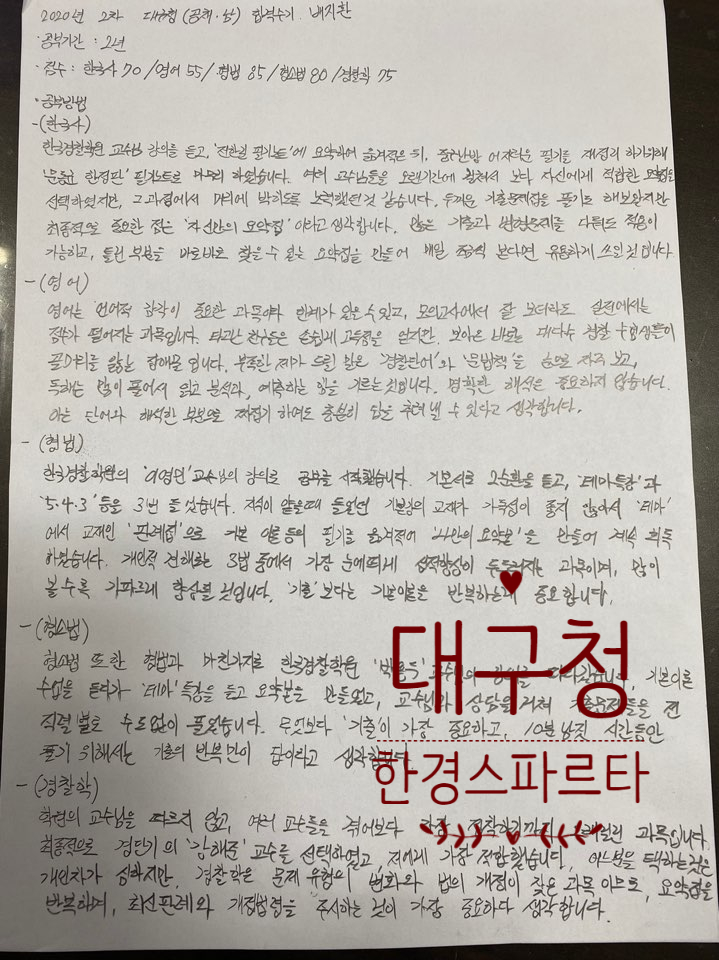 2020년 2차 대구청 (공채·남) 합격수기. 배지환
·공부기간 : 2년
·점수 : 한국사 70 / 영어 55 / 형법 85 / 형소법 80 / 경찰학 75
·공부방법
-(한국사)
한국경찰학원 교수님 강의를 듣고, '전한길 필기노트'에 요약하여 옮겨적은 뒤, 중구난방 어지러운 필기를 재정리 하기위해
한정판' 필기노트로 마무리 하였습니다. 여러 교수님들을 오랜기간에 걸쳐서 보다 자신에게 적합한 요약집을
선택하였지만, 그 과정에서 머리에 박히도록 노력했던 것 같습니다. 두꺼운 기출문제집을 풀기도 해보았지만
최종적으로 중요한 점은 '자신만의 요약집' 이라고 생각합니다. 많은 기출과 변형문제를 다뤄도 적용이
가능하고, 틀린 부분을 바로바로 찾을 수 있는 요약집을 만들어 매일 조금씩 본다면 유용하게 쓰일 것 입니다.
-(영어)
영어는 언어적 감각이 중요한 과목이라 한계가 있을 수 있고, 모의고사에서 잘 보더라도 실전에서는
점수가 떨어지는 과목입니다. 타고난 친구들은 손쉽게 고득점을 얻지만, 보아온 바로는 대다수 경찰 수험생들이
골머리를 앓는 장애물 입니다. 부족한 제가 드릴 말은 '경찰단어'와 '문법책'을 눈으로 자주 보고,
독해는 많이 풀어서 읽고 분석과, 예측하는 힘을 기르는 것입니다. 명확한 해석은 중요하지 않습니다.
아는 단어와 해석한 부분으로 짜집기 하여도 충분히 답을 추려낼 수 있다고 생각합니다.
-(형법)
한국경찰학원의 교수님의 강의로 공부를 시작했습니다. 기본서로 2순환을 듣고, '테마특강'과
'5.4.3' 등을 3번 들었습니다. 지식이 얕을때 들었던 기본강의 교재가 가독성이 좋지 않아서 '테마'
에서 교재인 '판례집'으로 기본 이론 등의 필기를 옮겨적어 '나만의 요약본'을 만들어 계속 회독
하였습니다. 개인적 견해로는 3법 중에서 가장 눈에띄게 성적향상이 두드러지는 과목이며, 많이
볼수록 가파르게 향상될 것입니다. '기출'보다는 기본이론을 반복하는게 중요합니다.
-(형소법)
형소법 또한 형법과 마찬가지로 한국경찰학원 교수님의 강의를 기본이론
수업을 듣다가 '테마'특강을 듣고 요약본을 만들었고, 교수님과 상담을 거쳐 기출문제들을 전
직렬 별로 수도없이 풀었습니다. 무엇보다 '기출'이 가장 중요하고, 10분 남짓 시간동안
풀기 위해서는 기출의 반복만이 답이라고 생각합니다.
-(경찰학)
학원의 교수님을 따르지 않고, 여러 교수들을 겪어보다 정착하기까지 과목입니다.
최종적으로 경단기의 '강해준' 교수를 선택하였고 저에게 가장 적합했습니다. 택하는것은
개인차가 심하지만, 경찰학은 문제 유형의 변화와 법의 개정이 잦은 과목 이므로, 요약집을
반복하며, 최신판례와 개정법령을 주시하는 것이 가장 중요하다 생각합니다.
대구청
한경스파르타